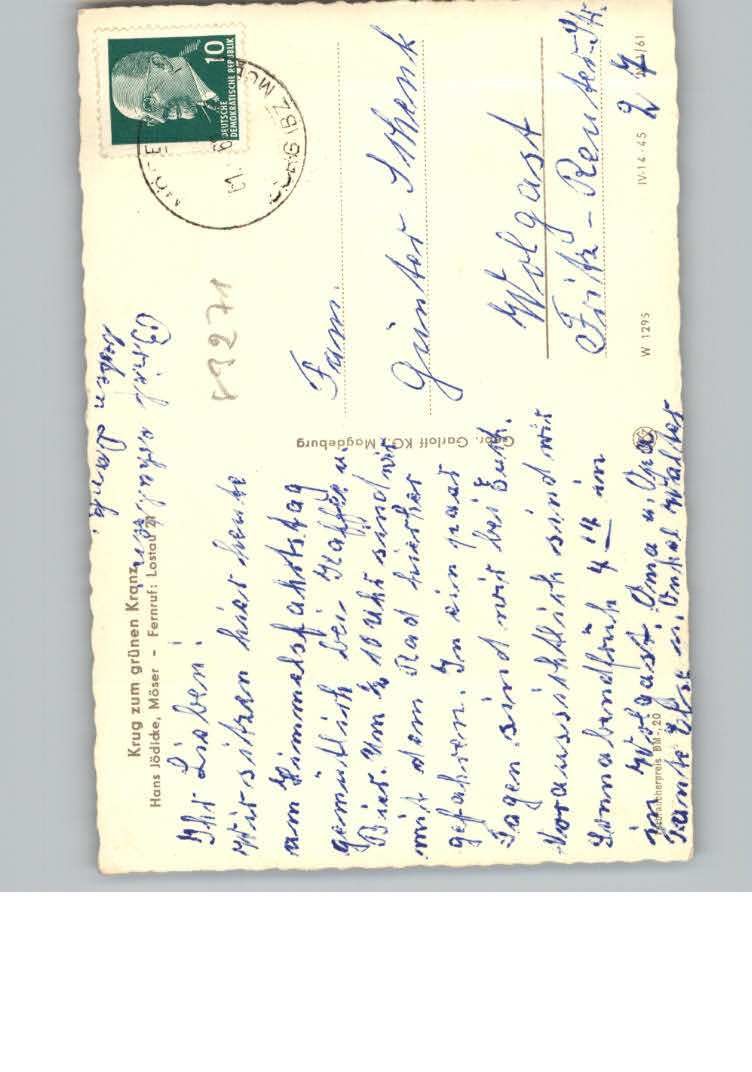 Krug zum grünen Kranz
Hans Jödicke, Möser - Fernruf: Lostau 21
Brief erhalten
vielen Dank
Ihr Lieben!
Wir sitzen hier heute
am Himmelsfahrtstag
gemütlich bei Kaffee u.
Bier. Um ½ 10 Uhr sind wir
mit dem Rad hierher
gefahren. In ein paar
Tagen sind wir bei Euch.
Voraussichtlich sind wir
Sonnabendfrüh 4 14 in
in Wolgast. Oma u. Opa
Tante Else u. Onkel Walter
Verbraucherpreis DM -,20
Gebr. Garloff KG., Magdeburg
10
DEUTSCHE
DEMOKRATISCHE REPUBLIK
BURG (BZ M
61
83271
Fam.
Günter Schenk
Wolgast
Fritz-Reuter-Str.
27
W 1295
IV-14-45
/61